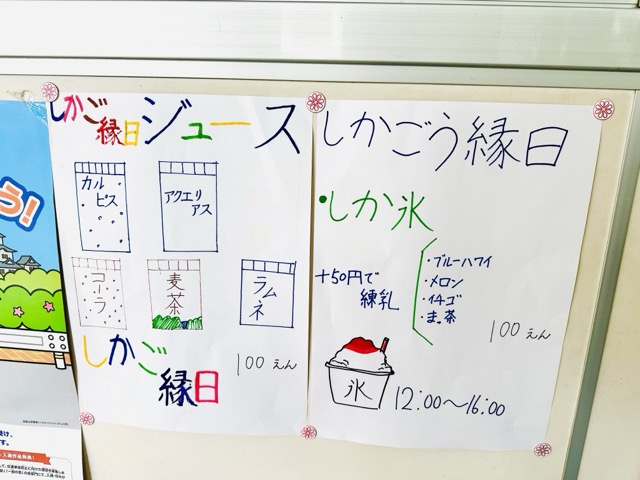 しかご縁日ジュース
カルピス
アクエリアス
コーラ
麦茶
ラムネ
しかご縁日
100えん
しかごう縁日
・しか氷
+50円で
練乳
・ブルーハワイ
・メロン
・イチゴ
・ま。茶
100えん
氷
12:00〜16:00
う!